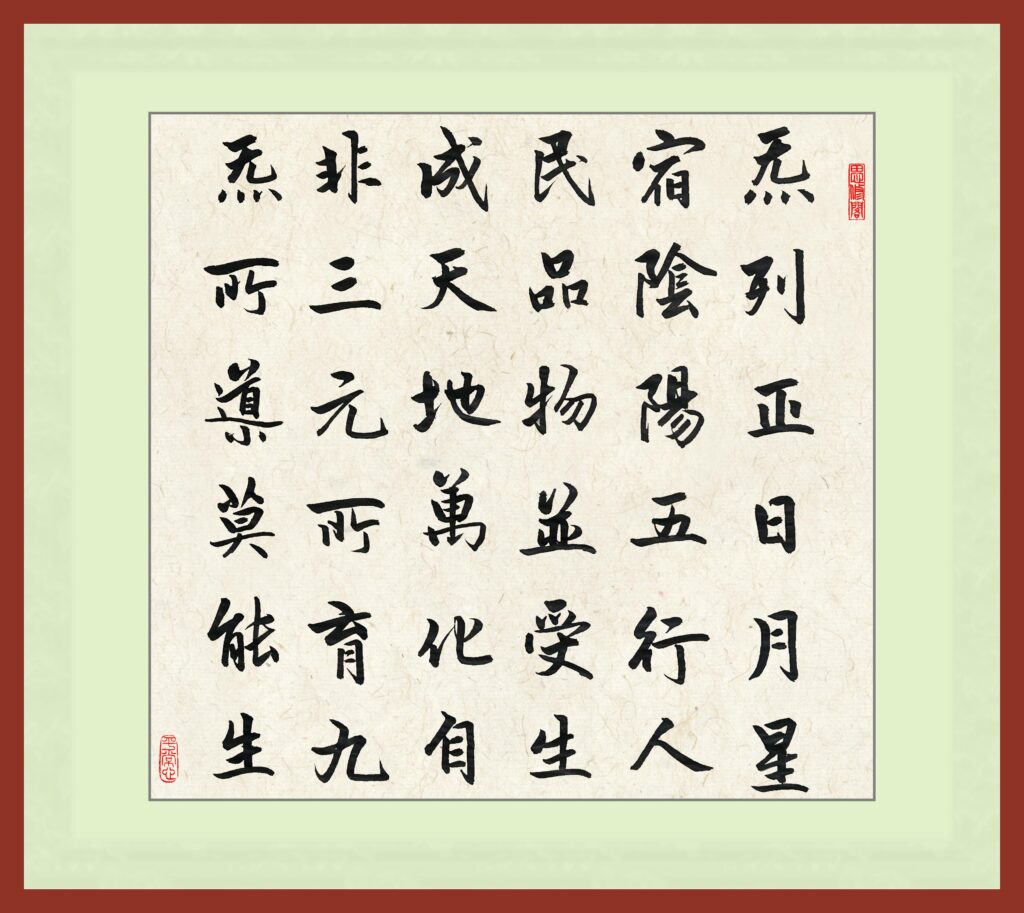 炁列正日月星
宿陰陽五行人
民品物並受生
成天地萬化自
非三元所育九
炁所導莫能生